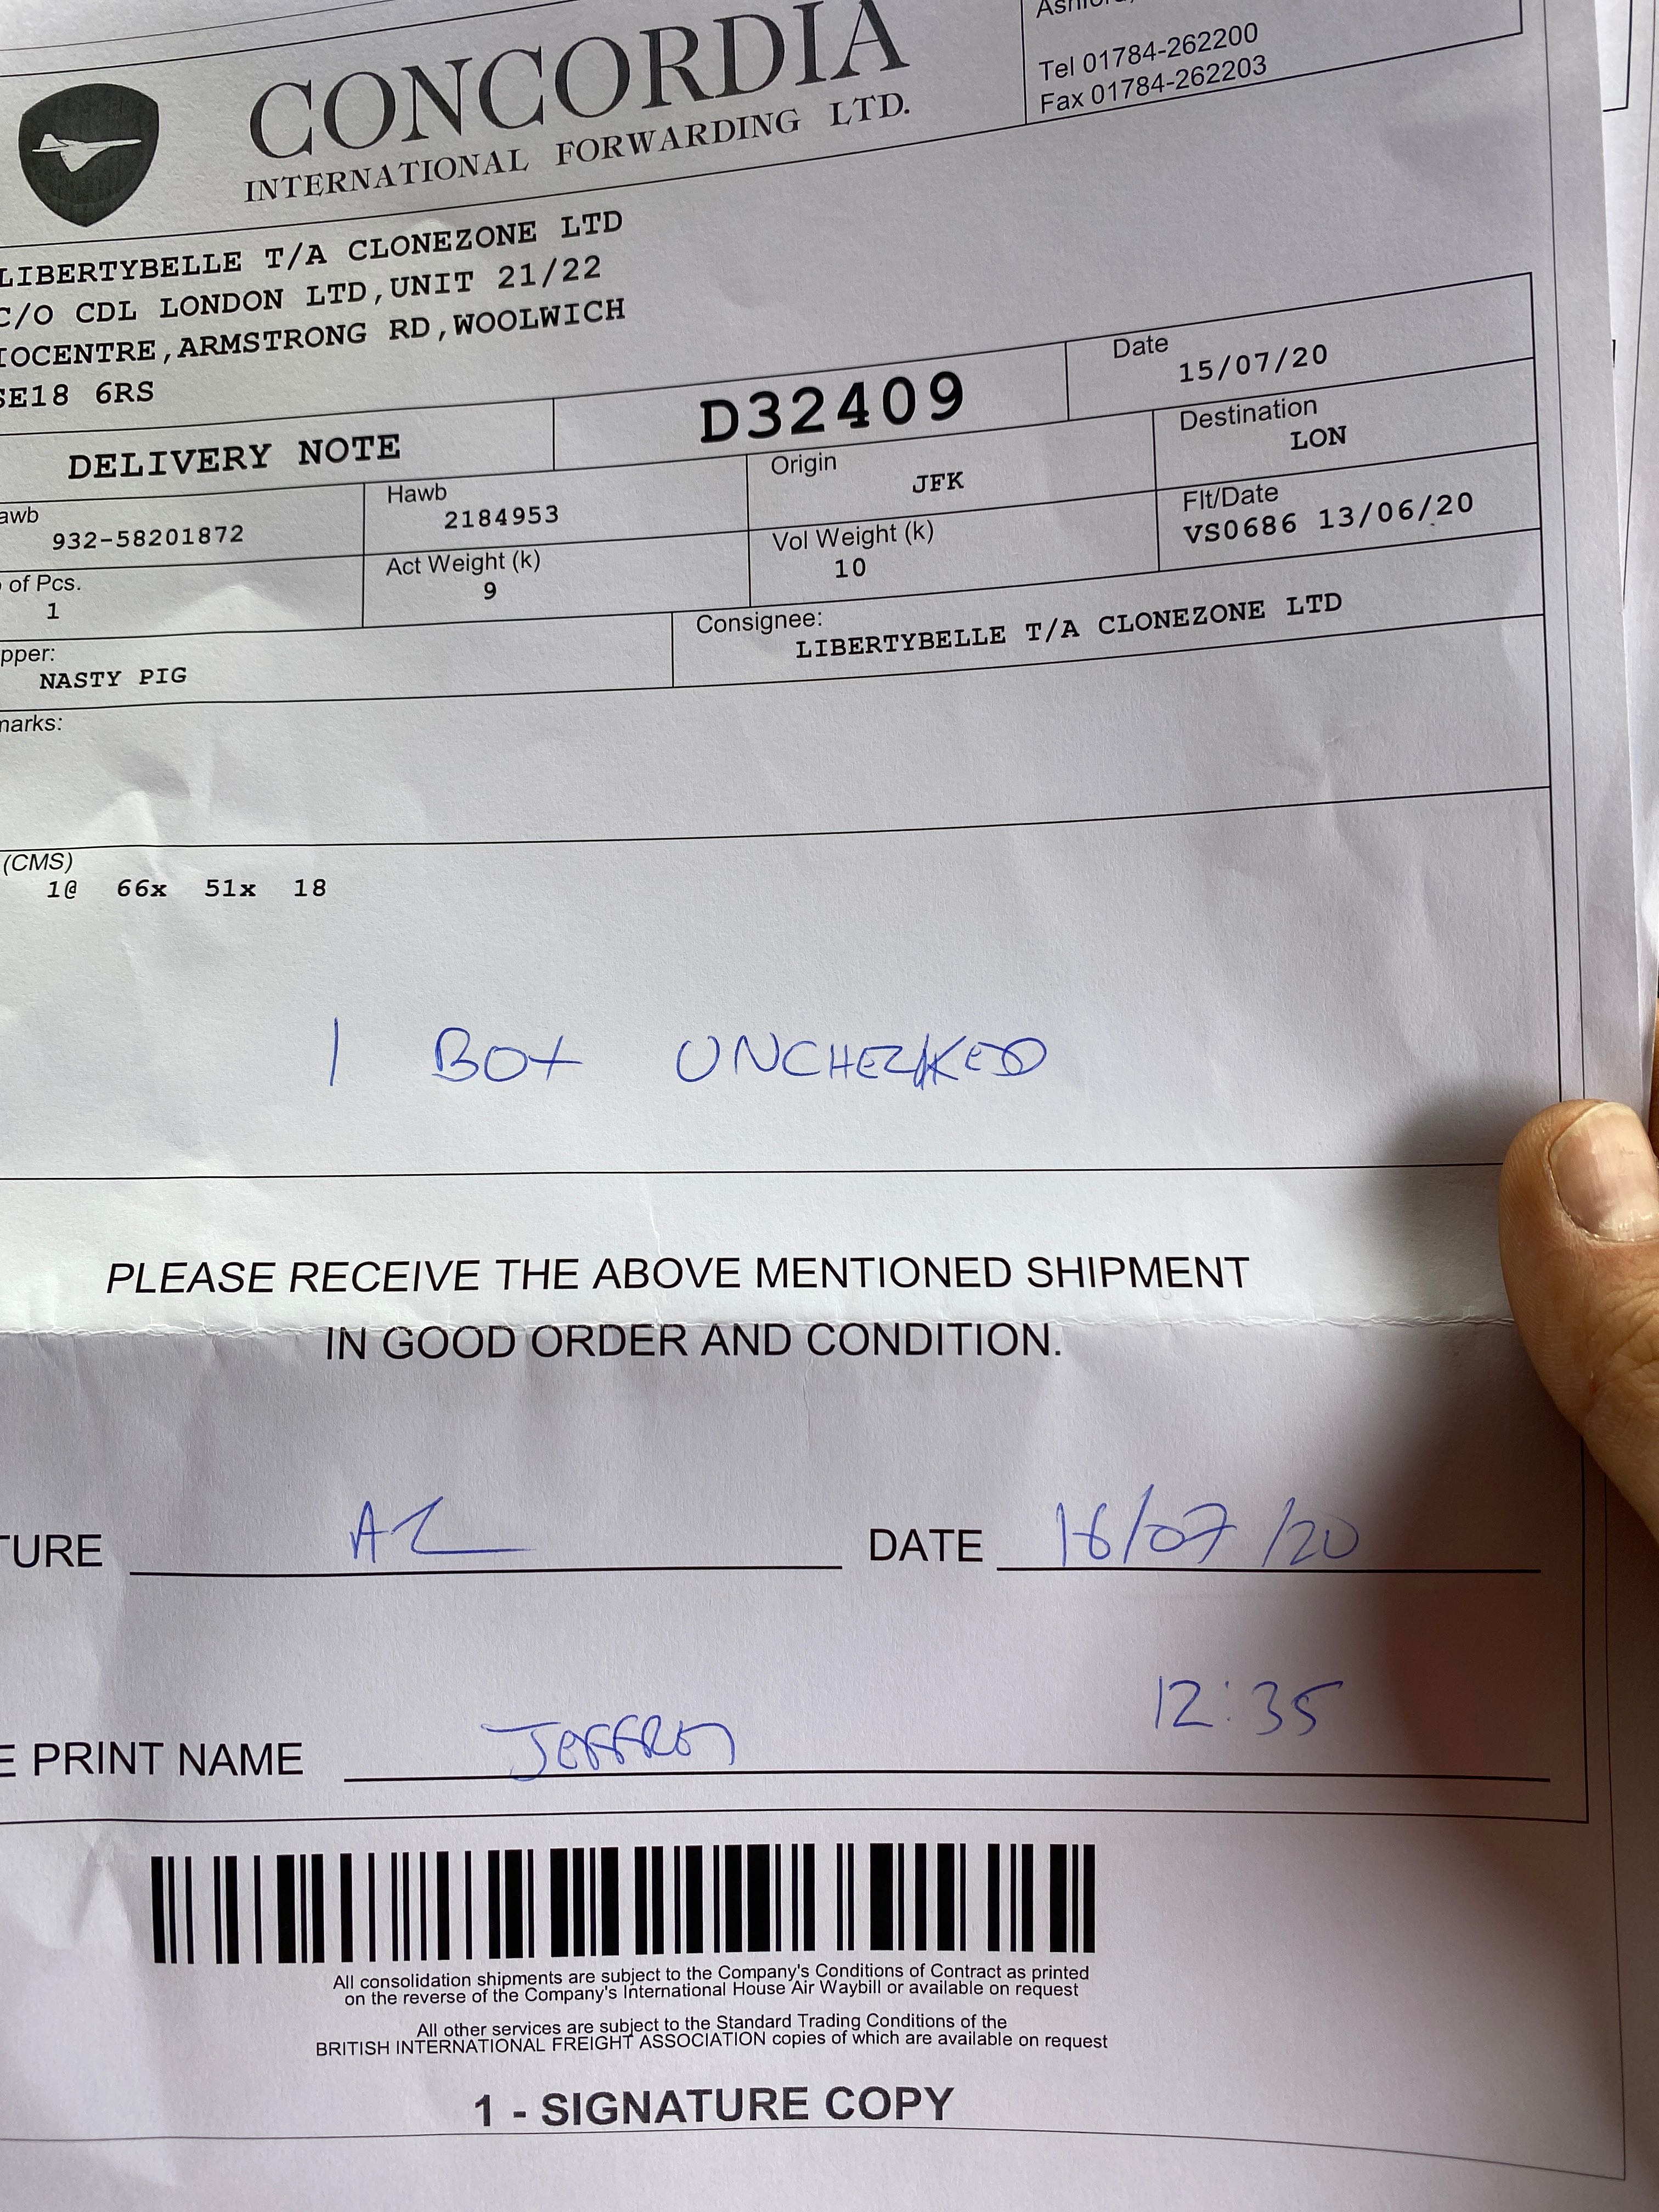 CONCORDIA
INTERNATIONAL FORWARDING LTD.
Tel 01784-262200
Fax 01784-262203
LIBERTYBELLE T/A CLONEZONE LTD
C/O CDL LONDON LTD,UNIT 21/22
IOCENTRE,ARMSTRONG RD,WOOLWICH
SE18 6RS
DELIVERY NOTE
D32409
Date
15/07/20
awb
932-58201872
Hawb
2184953
Origin
JFK
Destination
LON
of Pcs.
1
Act Weight (k)
9
Vol Weight (k)
10
Flt/Date
VS0686 13/06/20
pper:
NASTY PIG
Consignee:
LIBERTYBELLE T/A CLONEZONE LTD
marks:
(CMS)
1@ 66x 51x 18
1 BOX UNCHECKED
PLEASE RECEIVE THE ABOVE MENTIONED SHIPMENT
IN GOOD ORDER AND CONDITION.
TURE
DATE 16/07/20
12:35
E PRINT NAME JEFFREY
All consolidation shipments are subject to the Company's Conditions of Contract as printed
on the reverse of the Company's International House Air Waybill or available on request
All other services are subject to the Standard Trading Conditions of the
BRITISH INTERNATIONAL FREIGHT ASSOCIATION copies of which are available on request
1 - SIGNATURE COPY